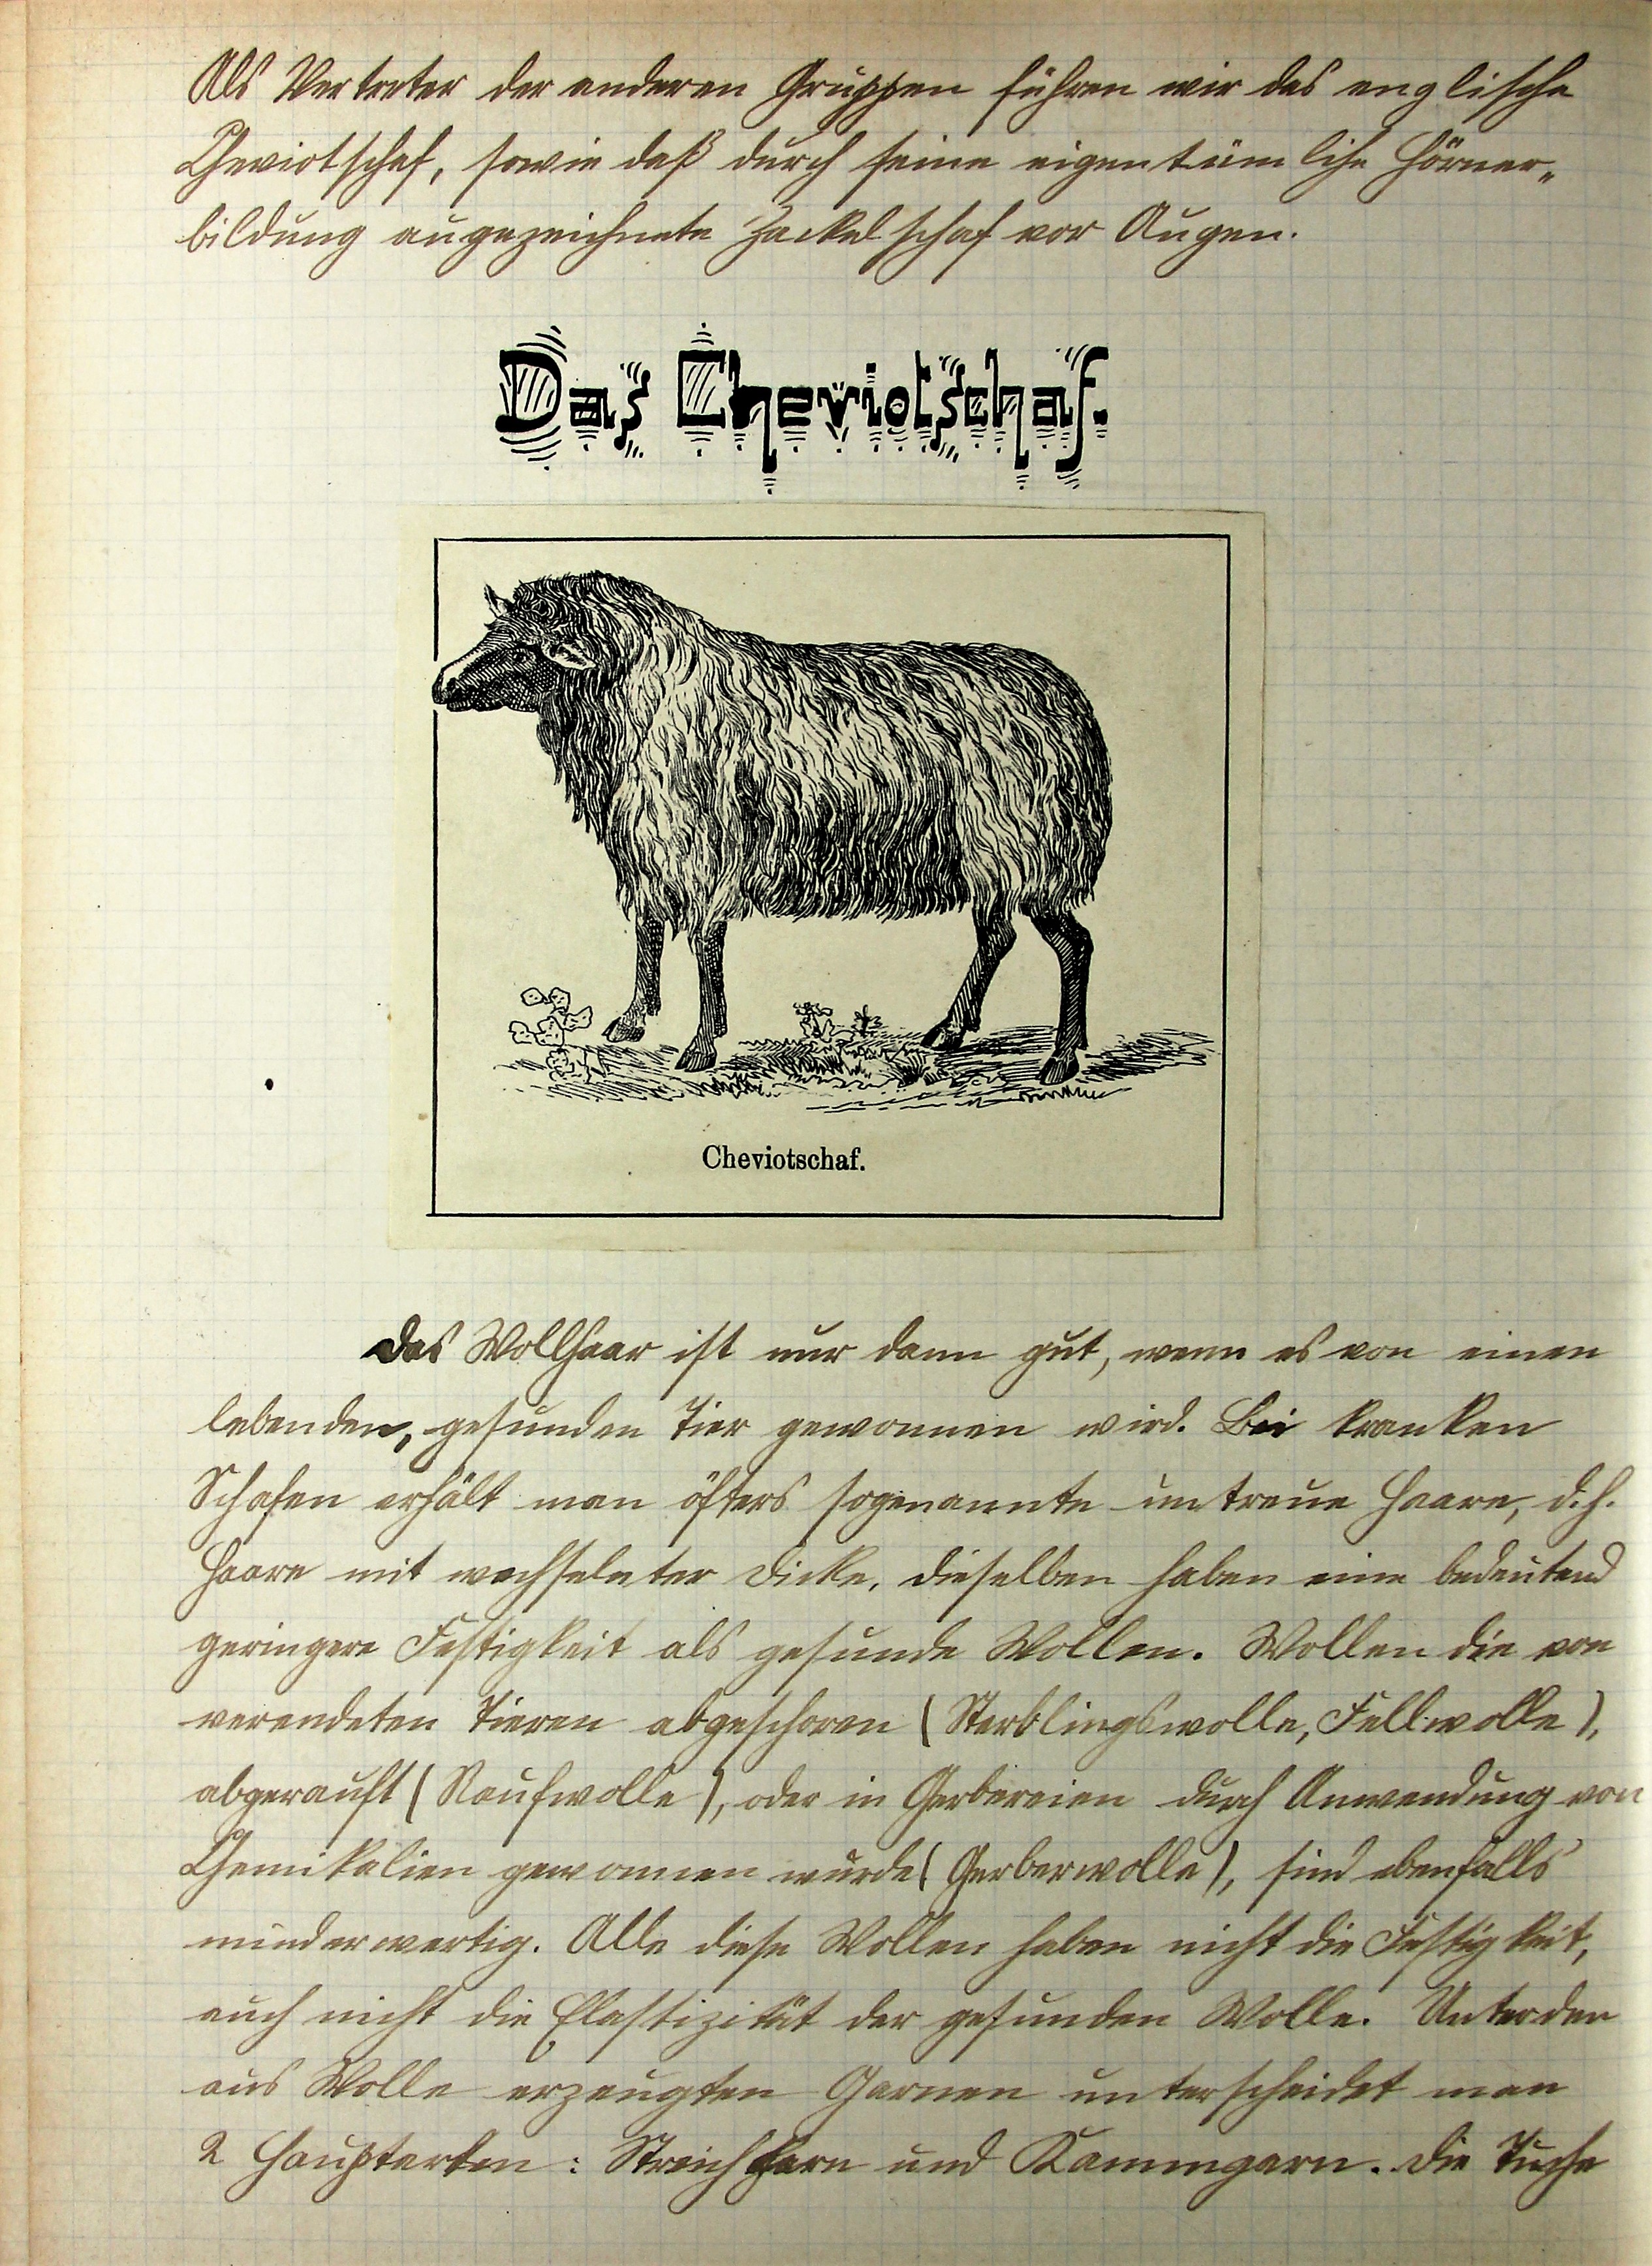 Als Vertreter der anderen Gruppen führen wir das englische
Cheviotschaf, sowie daß durch seine eigentümliche Hörner„
bildung augezeichnete Zackelschaf vor Augen.
Das Cheviotschaf.
Cheviotschaf.
Das Wollhaar ist nur dann gut, wenn es von einen
lebenden, gesunden Tier gewonnen wird. Bei kranken
Schafen erhält man öfters sogenannte untreue Haare, d.h.
Haare mit wechselnter Dicke, dieselben haben eine bedeutend
geringere Festigkeit als gesunde Wollen. Wollen die von
verendeten Tieren abgeschoren (Sterblingswolle, Fellwolle),
abgerauft (Raufwolle), oder in Gerbereien durch Anwendung von
Chemikalien gewonnen wurde (Gerberwolle), sind ebenfalls
minderwertig. Alle diese Wollen haben nicht die Festigkeit,
auch nicht die Elastizität der gesunden Wolle. Unter den
aus Wolle erzeugten Garnen unterscheidet man
2 Hauptarten: Streichgarn und Kammgarn. Die Tuche